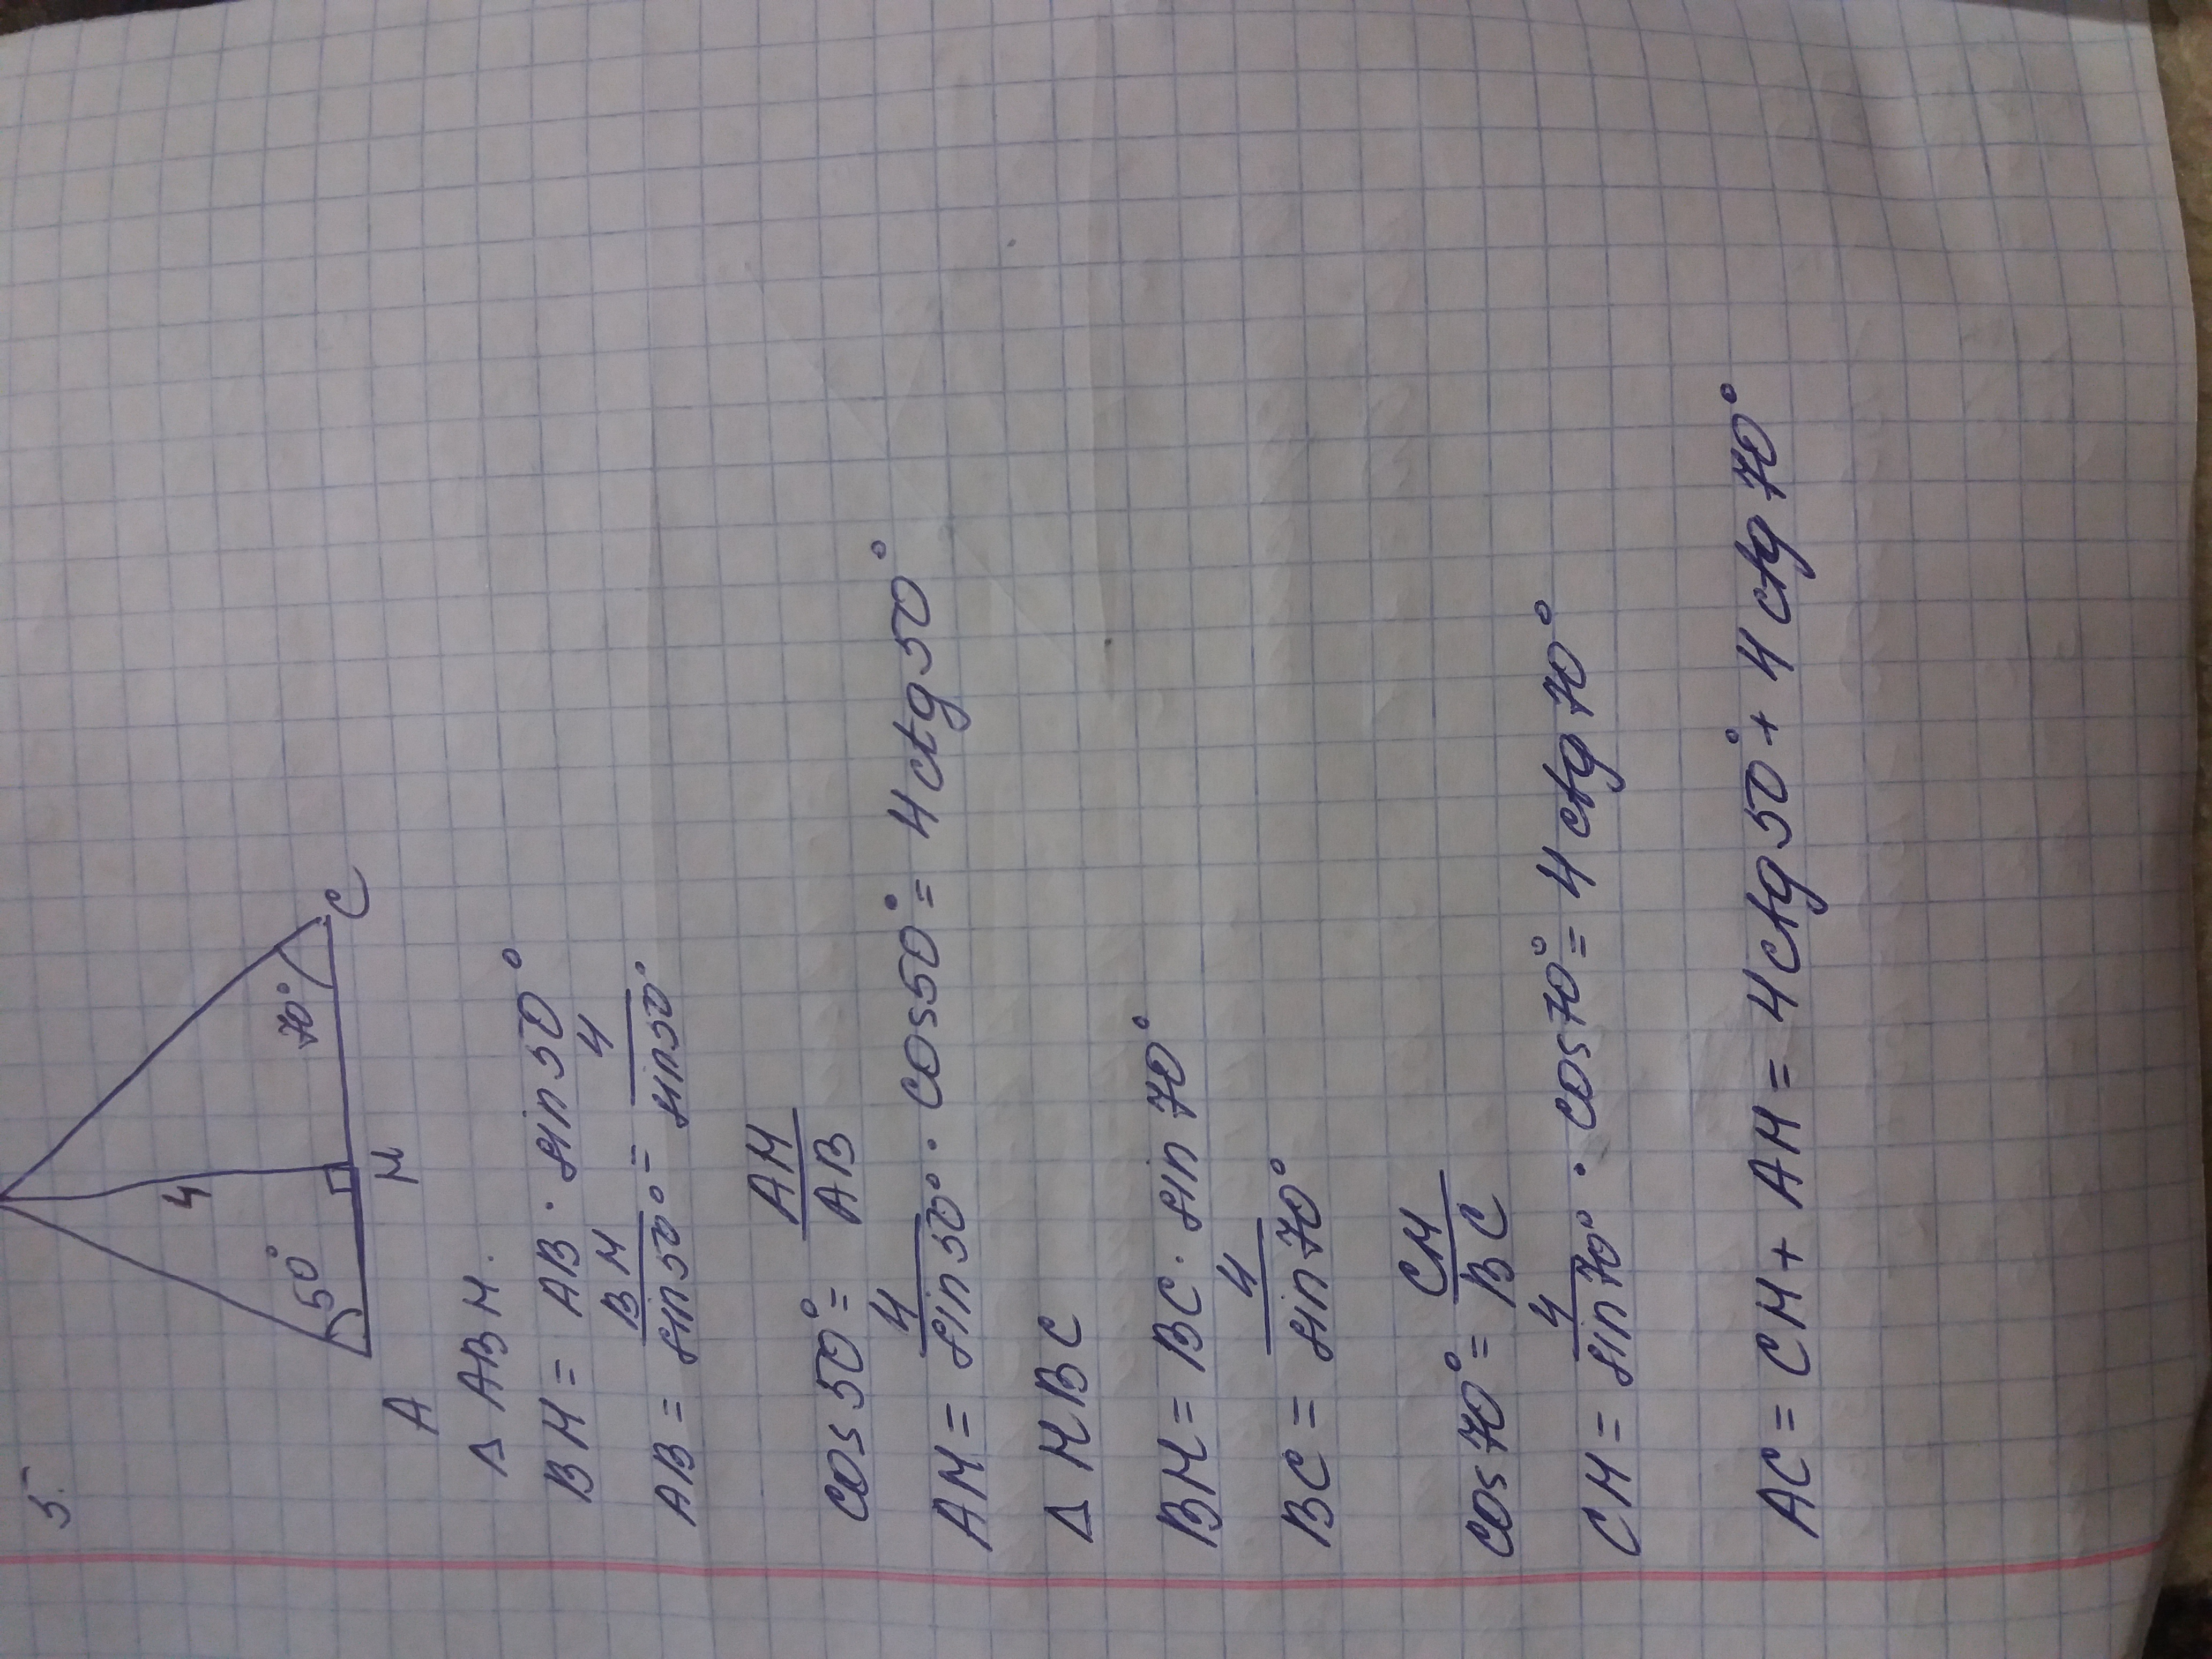 5.
4
50°
70°
A
H
C
Δ ABH.
BH = AB · sin 50°
AB = BH/sin50° = 4/sin50°
cos 50° = AH/AB
AH = 4/sin50° · cos50° = 4 ctg 50°
Δ HBC
BH = BC · sin 70°
BC = 4/sin 70°
cos 70° = CH/BC
CH = 4/sin70° · cos70° = 4 ctg 70°
AC = CH + AH = 4 ctg 50° + 4 ctg 70°